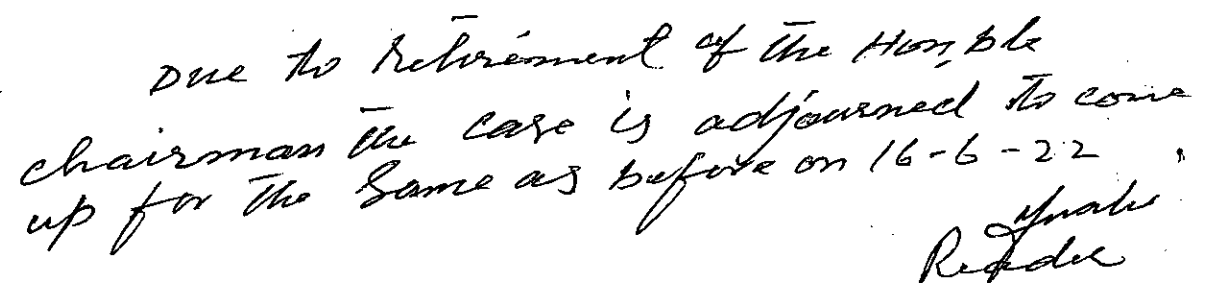 Due to Retirement of the Hon,ble
chairman the case is adjourned to come
up for the Same as before on 16-6-22
Reader